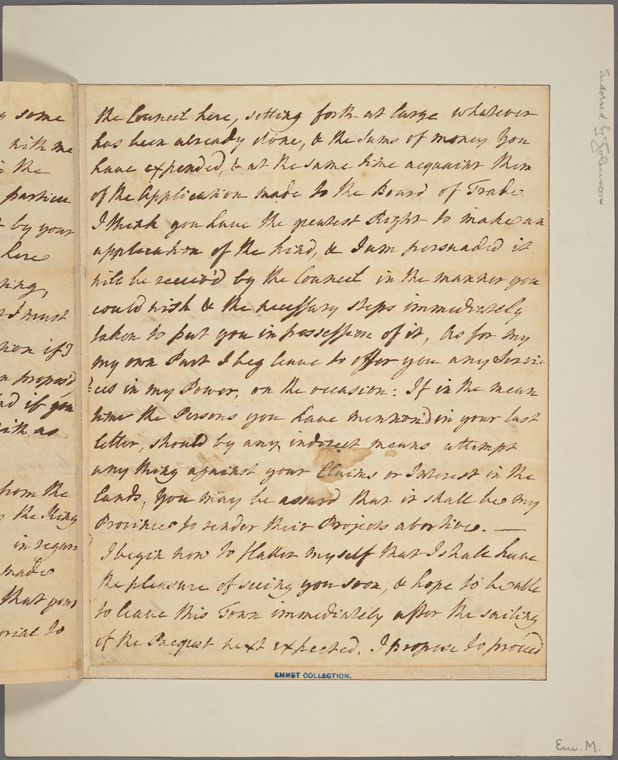 y some
with me
in the
particu
by your
here
ring,
I must
non if I
n propos'd
nd if you
with as
from the
y the King
in regar
made
that your
orial to
the Council here, setting forth at large whatever
has been already done, & the Sums of money you
have expended, & at the same time acquaint them
of the Application made to the Board of Trade
I think you have the greatest Right to make an
application of the kind, & I am persuaded it
will be receiv'd by the Council in the manner you
could wish & the necessary steps immediately
taken to put you in possession of it, As for my
my own Part I beg leave to offer you any Servi-
ces in my Power, on the occasion: If in the mean
time the Persons you have mention'd in your last
letter, should by any indirect means attempt
any thing against your Claims or Interest in the
lands, you may be assurd that it shall be my
Province to render their Projects abortive. —
I begin now to flatter myself that I shall have
the pleasure of seeing you soon, & hope to be able
to leave this Town immediately after the sailing
of the Pacquet next expected. I propose to proceed
EMMET COLLECTION.
Endorsed by Johnson
Em. M.